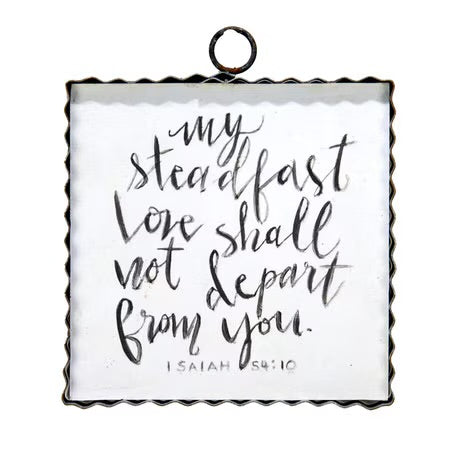 my
steadfast
love shall
not depart
from you.
ISAIAH 54:10